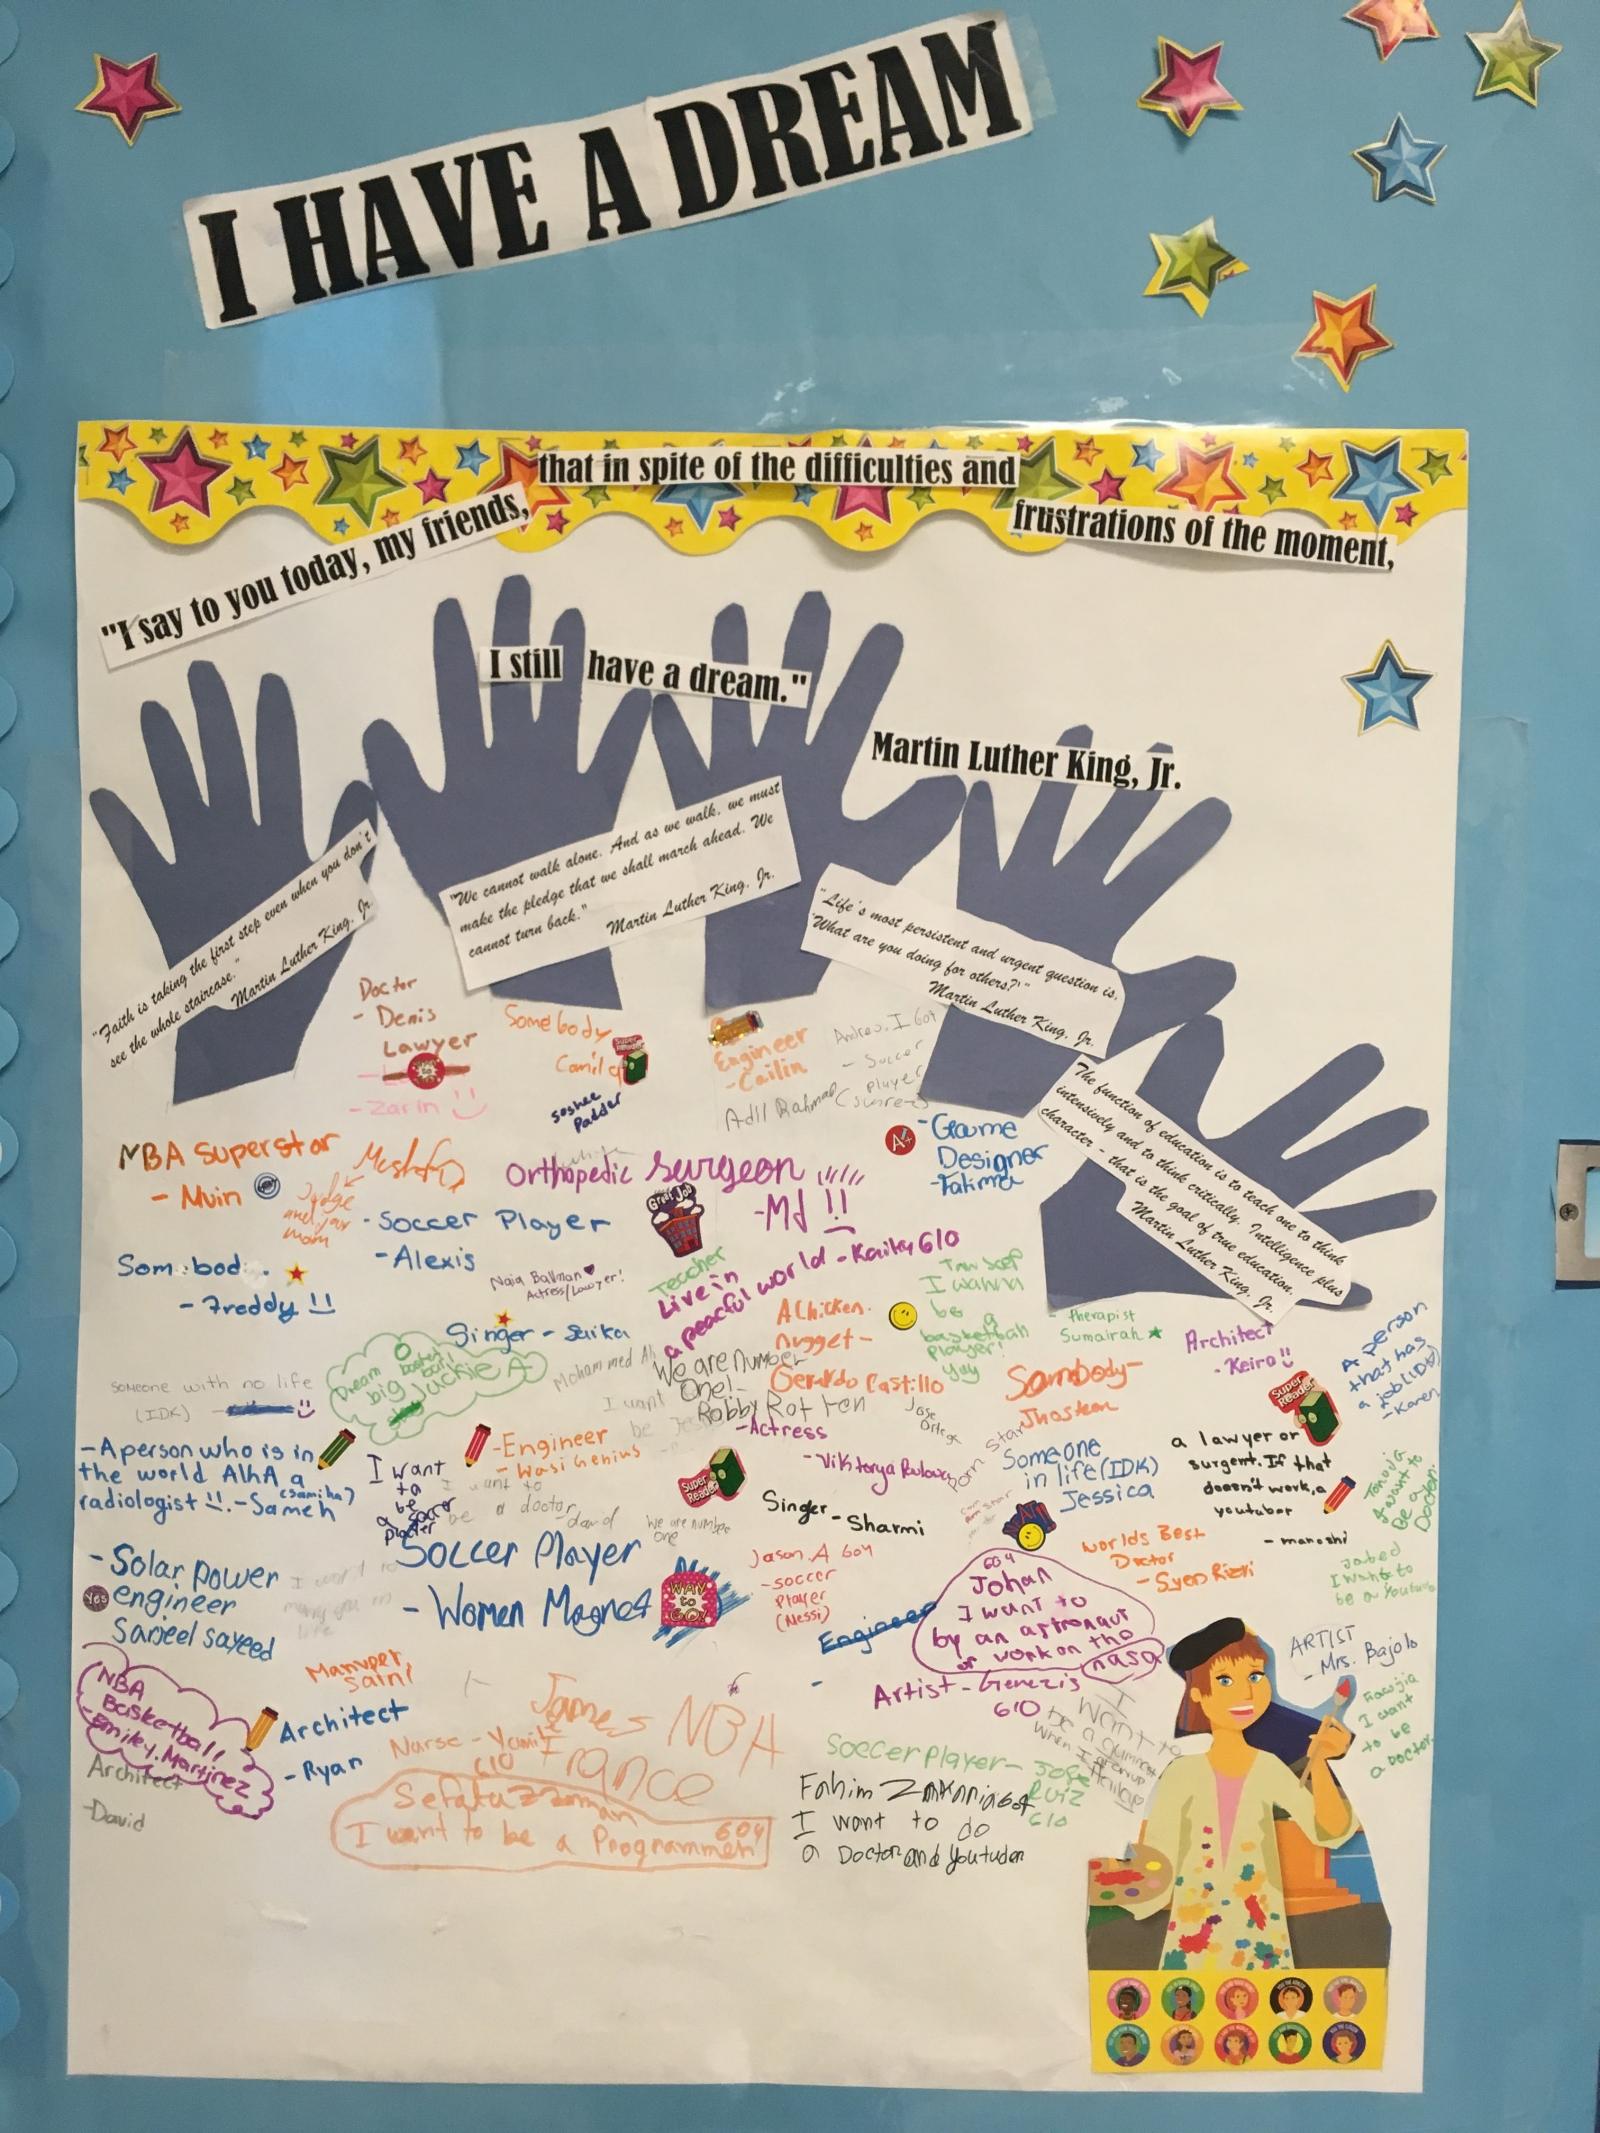 I HAVE A DREAM
"I say to you today, my friends,
that in spite of the difficulties and
frustrations of the moment,
I still have a dream."
Martin Luther King, Jr.
"Faith is taking the first step even when you don't
see the whole staircase."
Martin Luther King, Jr.
"We cannot walk alone. And as we walk, we must
make the pledge that we shall march ahead. We
cannot turn back."
Martin Luther King, Jr.
"Life's most persistent and urgent question is,
'What are you doing for others?'"
Martin Luther King, Jr.
The function of education is to teach one to think
intensively and to think critically. Intelligence plus
character - that is the goal of true education.
Martin Luther King, Jr.
Doctor
- Denis
Lawyer
- Zarin
Somebody
Camila
Engineer
- Cailin
Andres. I 604
- Soccer
player
(Suarez)
Adil Rahman
NBA Superstar
- Muin
Mustafa
Judge
Orthopedic surgeon
- Md !!
GREAT JOB
A+
- Game
Designer
- Fatima
- Soccer Player
- Alexis
- Freddy !!
Actress/Lawyer!
Teacher
Live in
a peaceful world - Kaity 610
I wanna
be a
basketball
player!
yay
- therapist
Sumairah
Architect
- Keiro
A person
that has
a job (IDK)
- Karen
Singer - Saika
Dream big
Juckie A
Mohammed Ali
A Chicken
nugget -
Gerardo Castillo
We are number
One! -
Robby Rotten
Somebody -
Jhosten
SOMEONE with no life
(IDK)
- A person who is in
the world AKA a
radiologist !! - Sameh
(Samiha)
I want
to
be
a
soccer
- Engineer
- Wasi Genius
I want to
be a doctor
david
- Actress
- Viktorya
Super
Reader
Someone
in life (IDK)
Jessica
a lawyer or
surgent. If that
doesn't work, a
youtuber
- manoshi
Super
Reader
I want to
Be a
Doctor.
Singer - Sharmi
We are number
one
- Solar power
engineer
Sarjeel sayeed
Yes
Soccer Player
- Women Magnet
WAY
to
GO!
Jason. A 604
- soccer
player
(Messi)
Worlds Best
Doctor
- Syed Rizvi
Jabed
I want to
be a Youtuber
604
Johan
I want to
by an astronaut
or work on the
nasa
Engineer
Artist - Genezis
610
ARTIST
- Mrs. Bajolo
NBA
Basketball
- Emiley. Martinez
Architect
- Ryan
Architect
- David
Nurse -
610
James
France
NBA
Sefatuzzaman
604
I want to be a Programmer
Soccer player - Jose
Ruiz
610
I want to do
a Doctor and Youtuder
I want
to be
a doctor